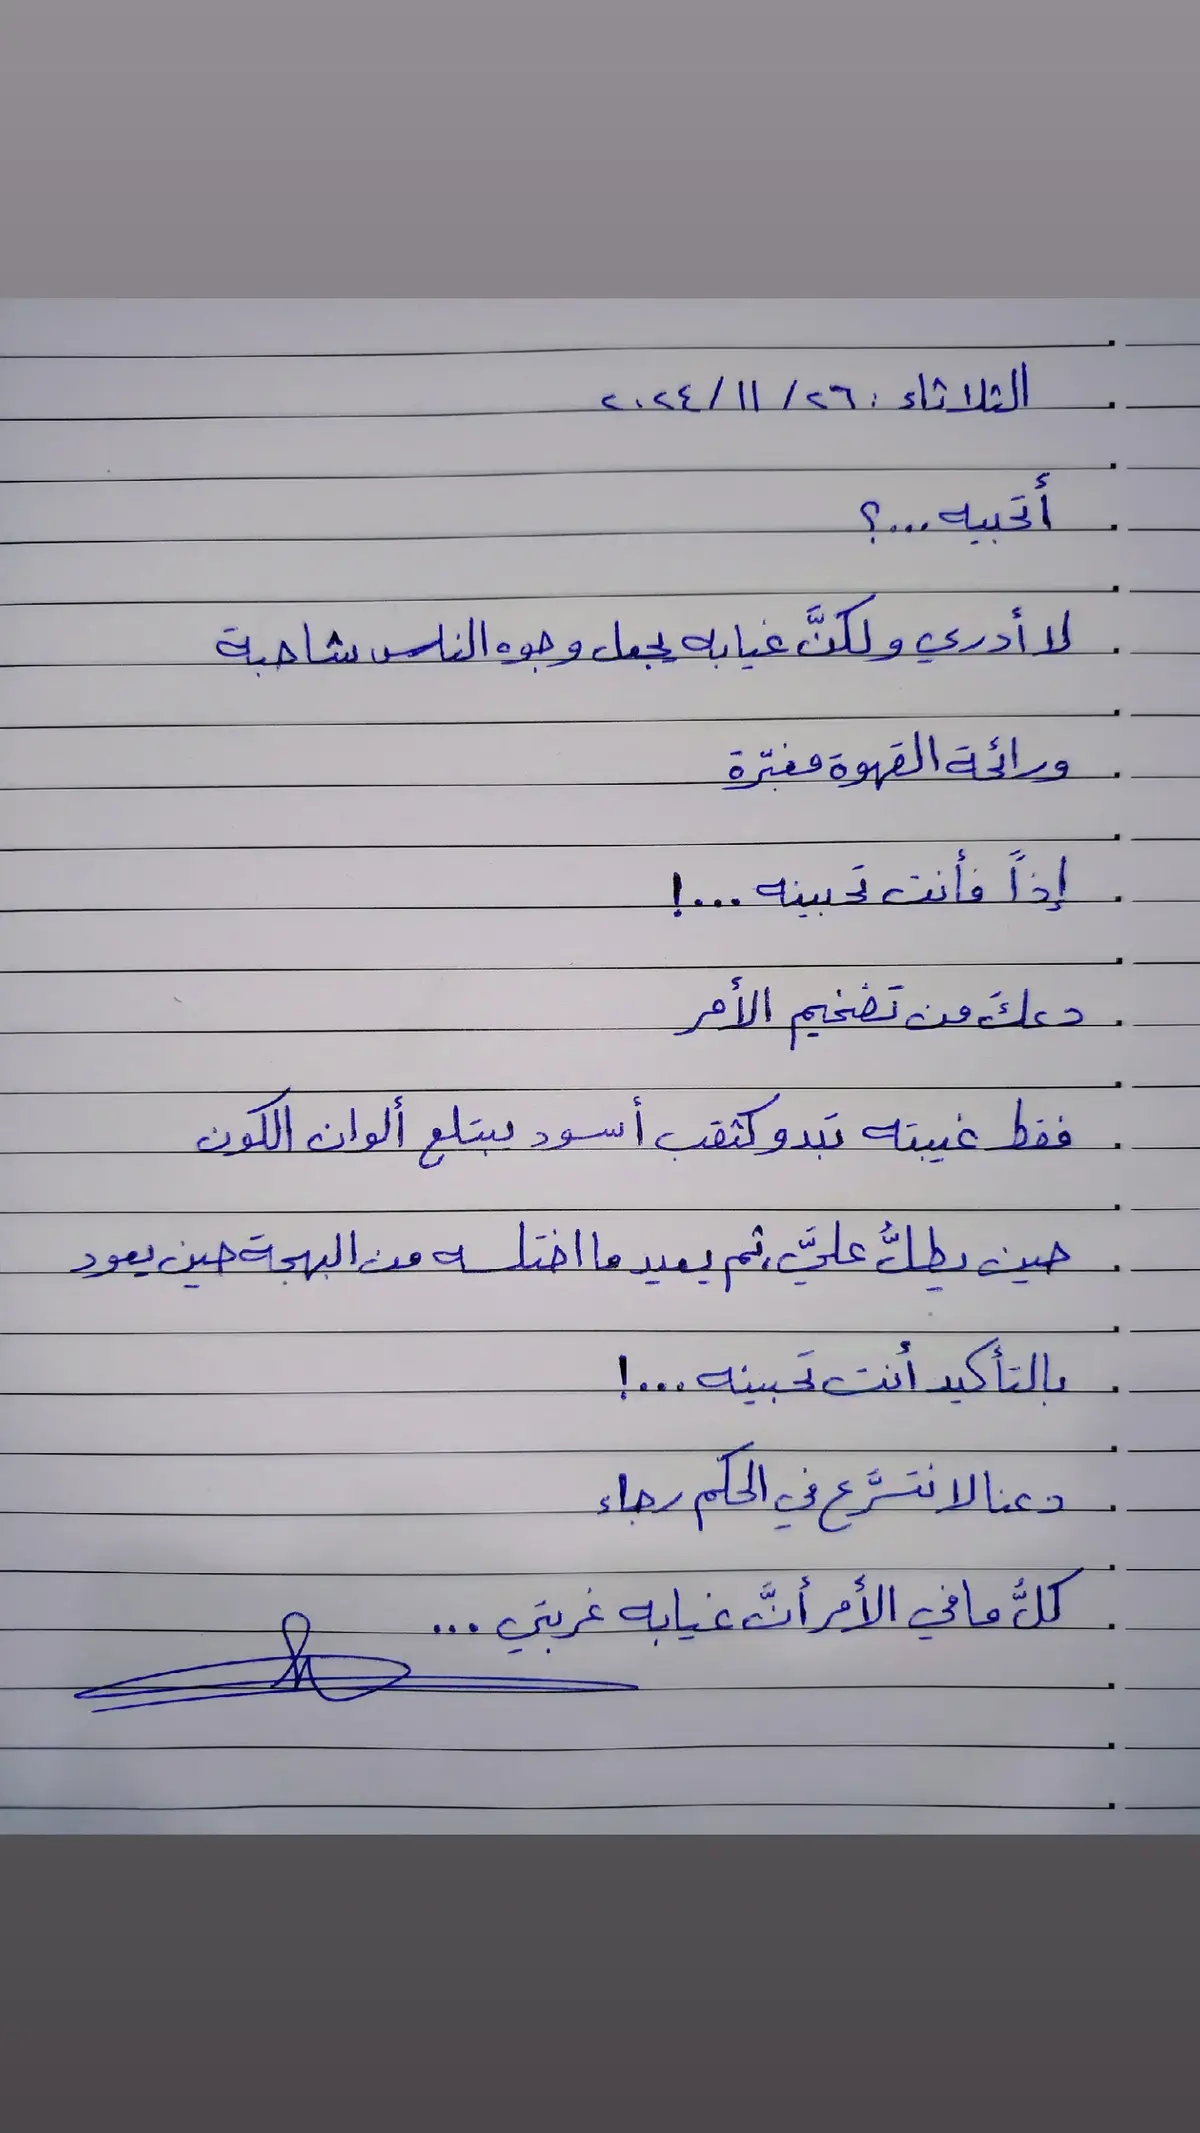 الثلاثاء : ٢٦/ ١١ /٢٠٢٤
أتحبيه ...؟
لا أدري ولكنَّ غيابه يجعل وجوه الناس شاحبة
ورائحة القهوة مغبّرة
إذاً فأنت تحبينه ...!
دعكَ من تضخيم الأمر
فقط غيبته تبدو كثقب أسود يبتلع ألوان الكون
حين يطلُّ عليَّ، ثم يعيد ما اختلسه من البهجة حين يعود
بالتأكيد أنت تحبينه ...!
دعنا لا نتسرَّع في الحكم رجاء
كلُّ ما في الأمر أنَّ غيابه غربتي ...